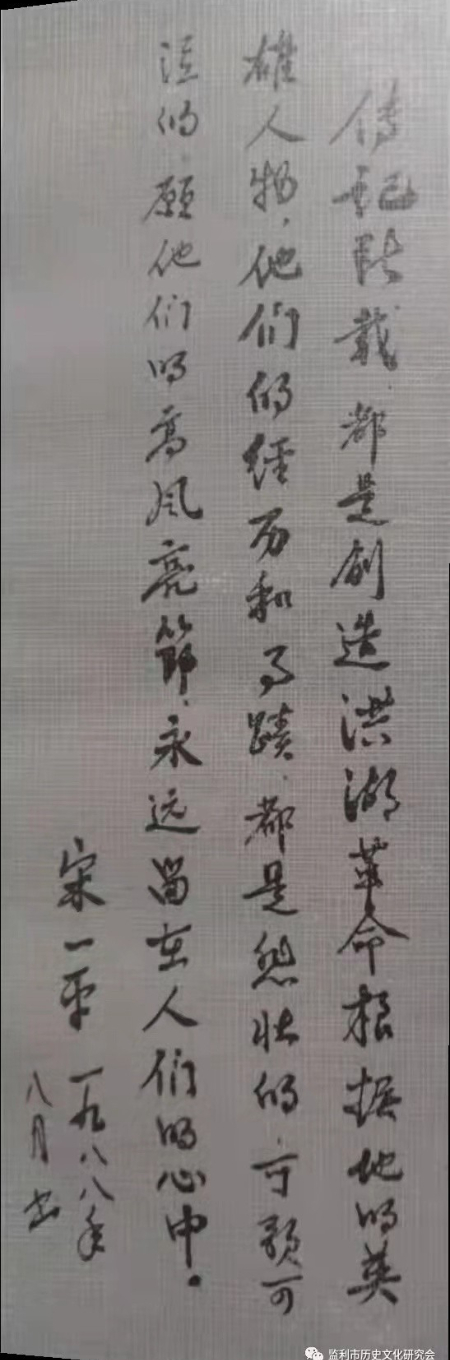 传记所载，都是创造洪湖革命根据地的英
雄人物，他们的经历和事蹟，都是悲壮的，可歌可
泣的，愿他们的高风亮节，永远留在人们的心中。
宋一平 一九八八年
八月书
监利市历史文化研究会